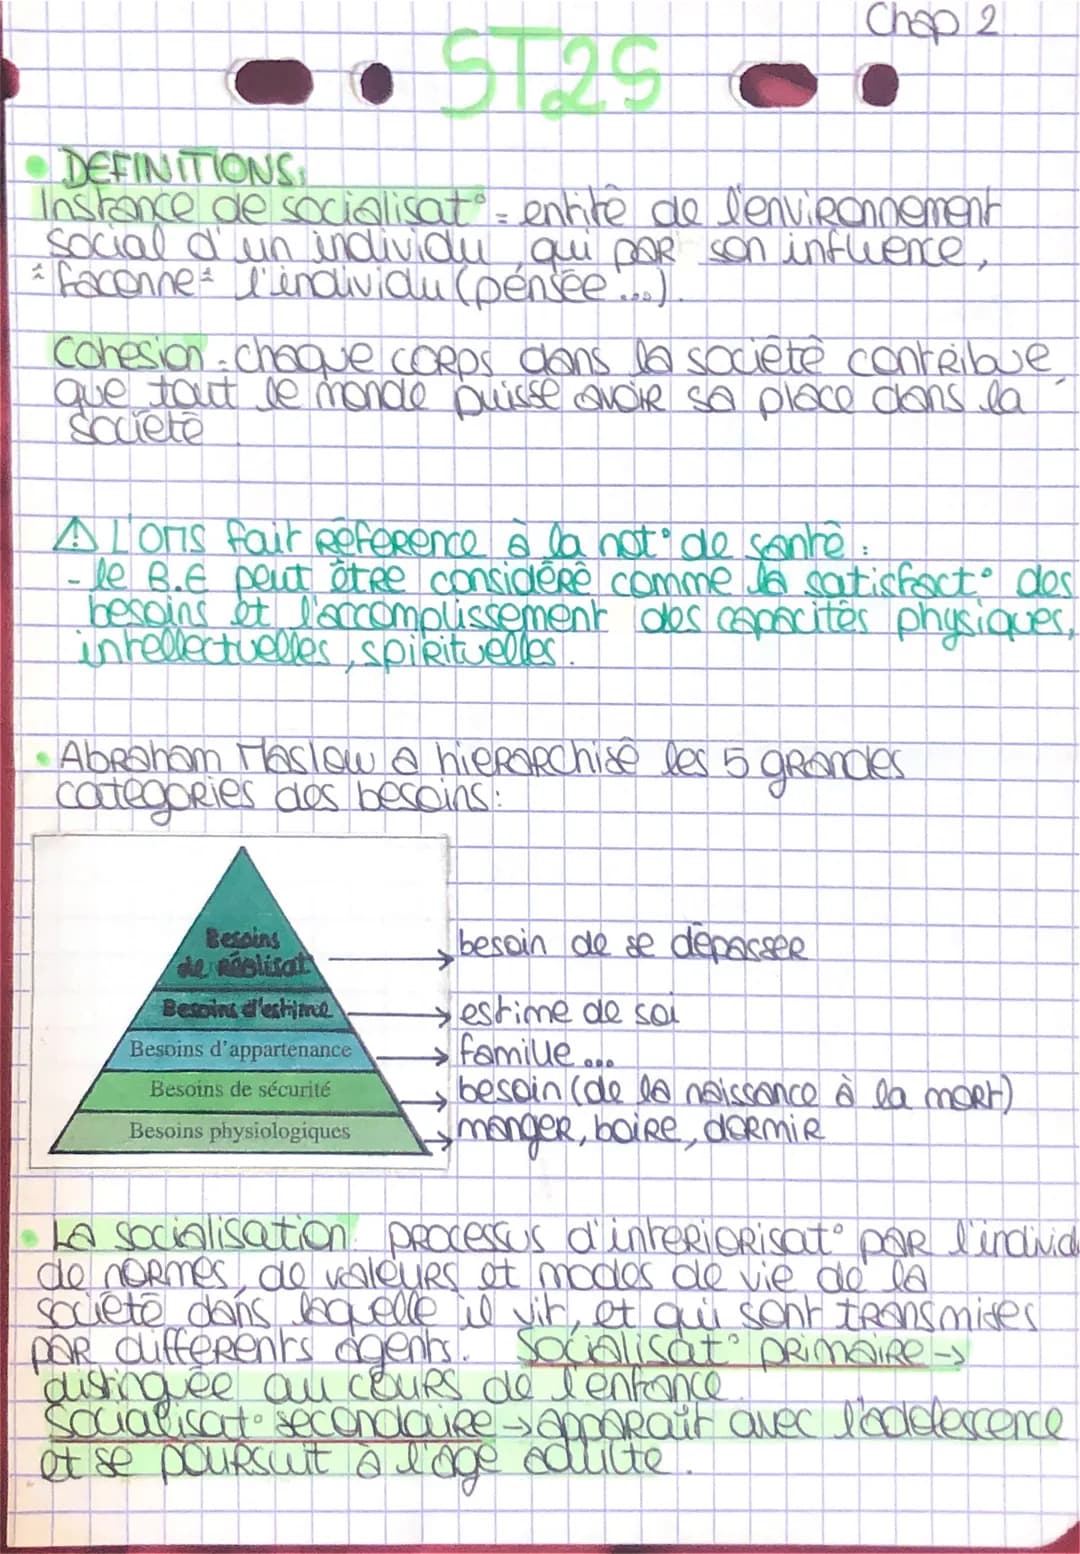 Chap 2
ST2S
• DEFINITIONS:
Instance de socialisat° = entité de l'environnement
social d'un individu, qui par son influence,
"façonne" l'individu (pensée...).
Cohésion - chaque corps dans la société contribue,
que tout le monde puisse avoir sa place dans la
société
⚠ L'OMS fait référence à la not° de santé :
- le B.E peut être considéré comme la satisfact° des
besoins et l'accomplissement des capacités physiques,
intellectuelles, spirituelles.
• Abraham Maslow a hiérarchisé les 5 grandes
catégories des besoins:
Besoins
de réalisat → besoin de se dépasser
Besoins d'estime → estime de soi
Besoins d'appartenance → famille...
Besoins de sécurité → besoin (de la naissance à la mort)
Besoins physiologiques → manger, boire, dormir
• La socialisation: processus d'intériorisat° par l'individ
de normes, de valeurs et modes de vie de la
société dans laquelle il vit, et qui sont transmises
par différents agents. Socialisat° primaire →
distinguée au cours de l'enfance.
Socialisat° secondaire → apparaît avec l'adolescence
et se poursuit à l'âge adulte.